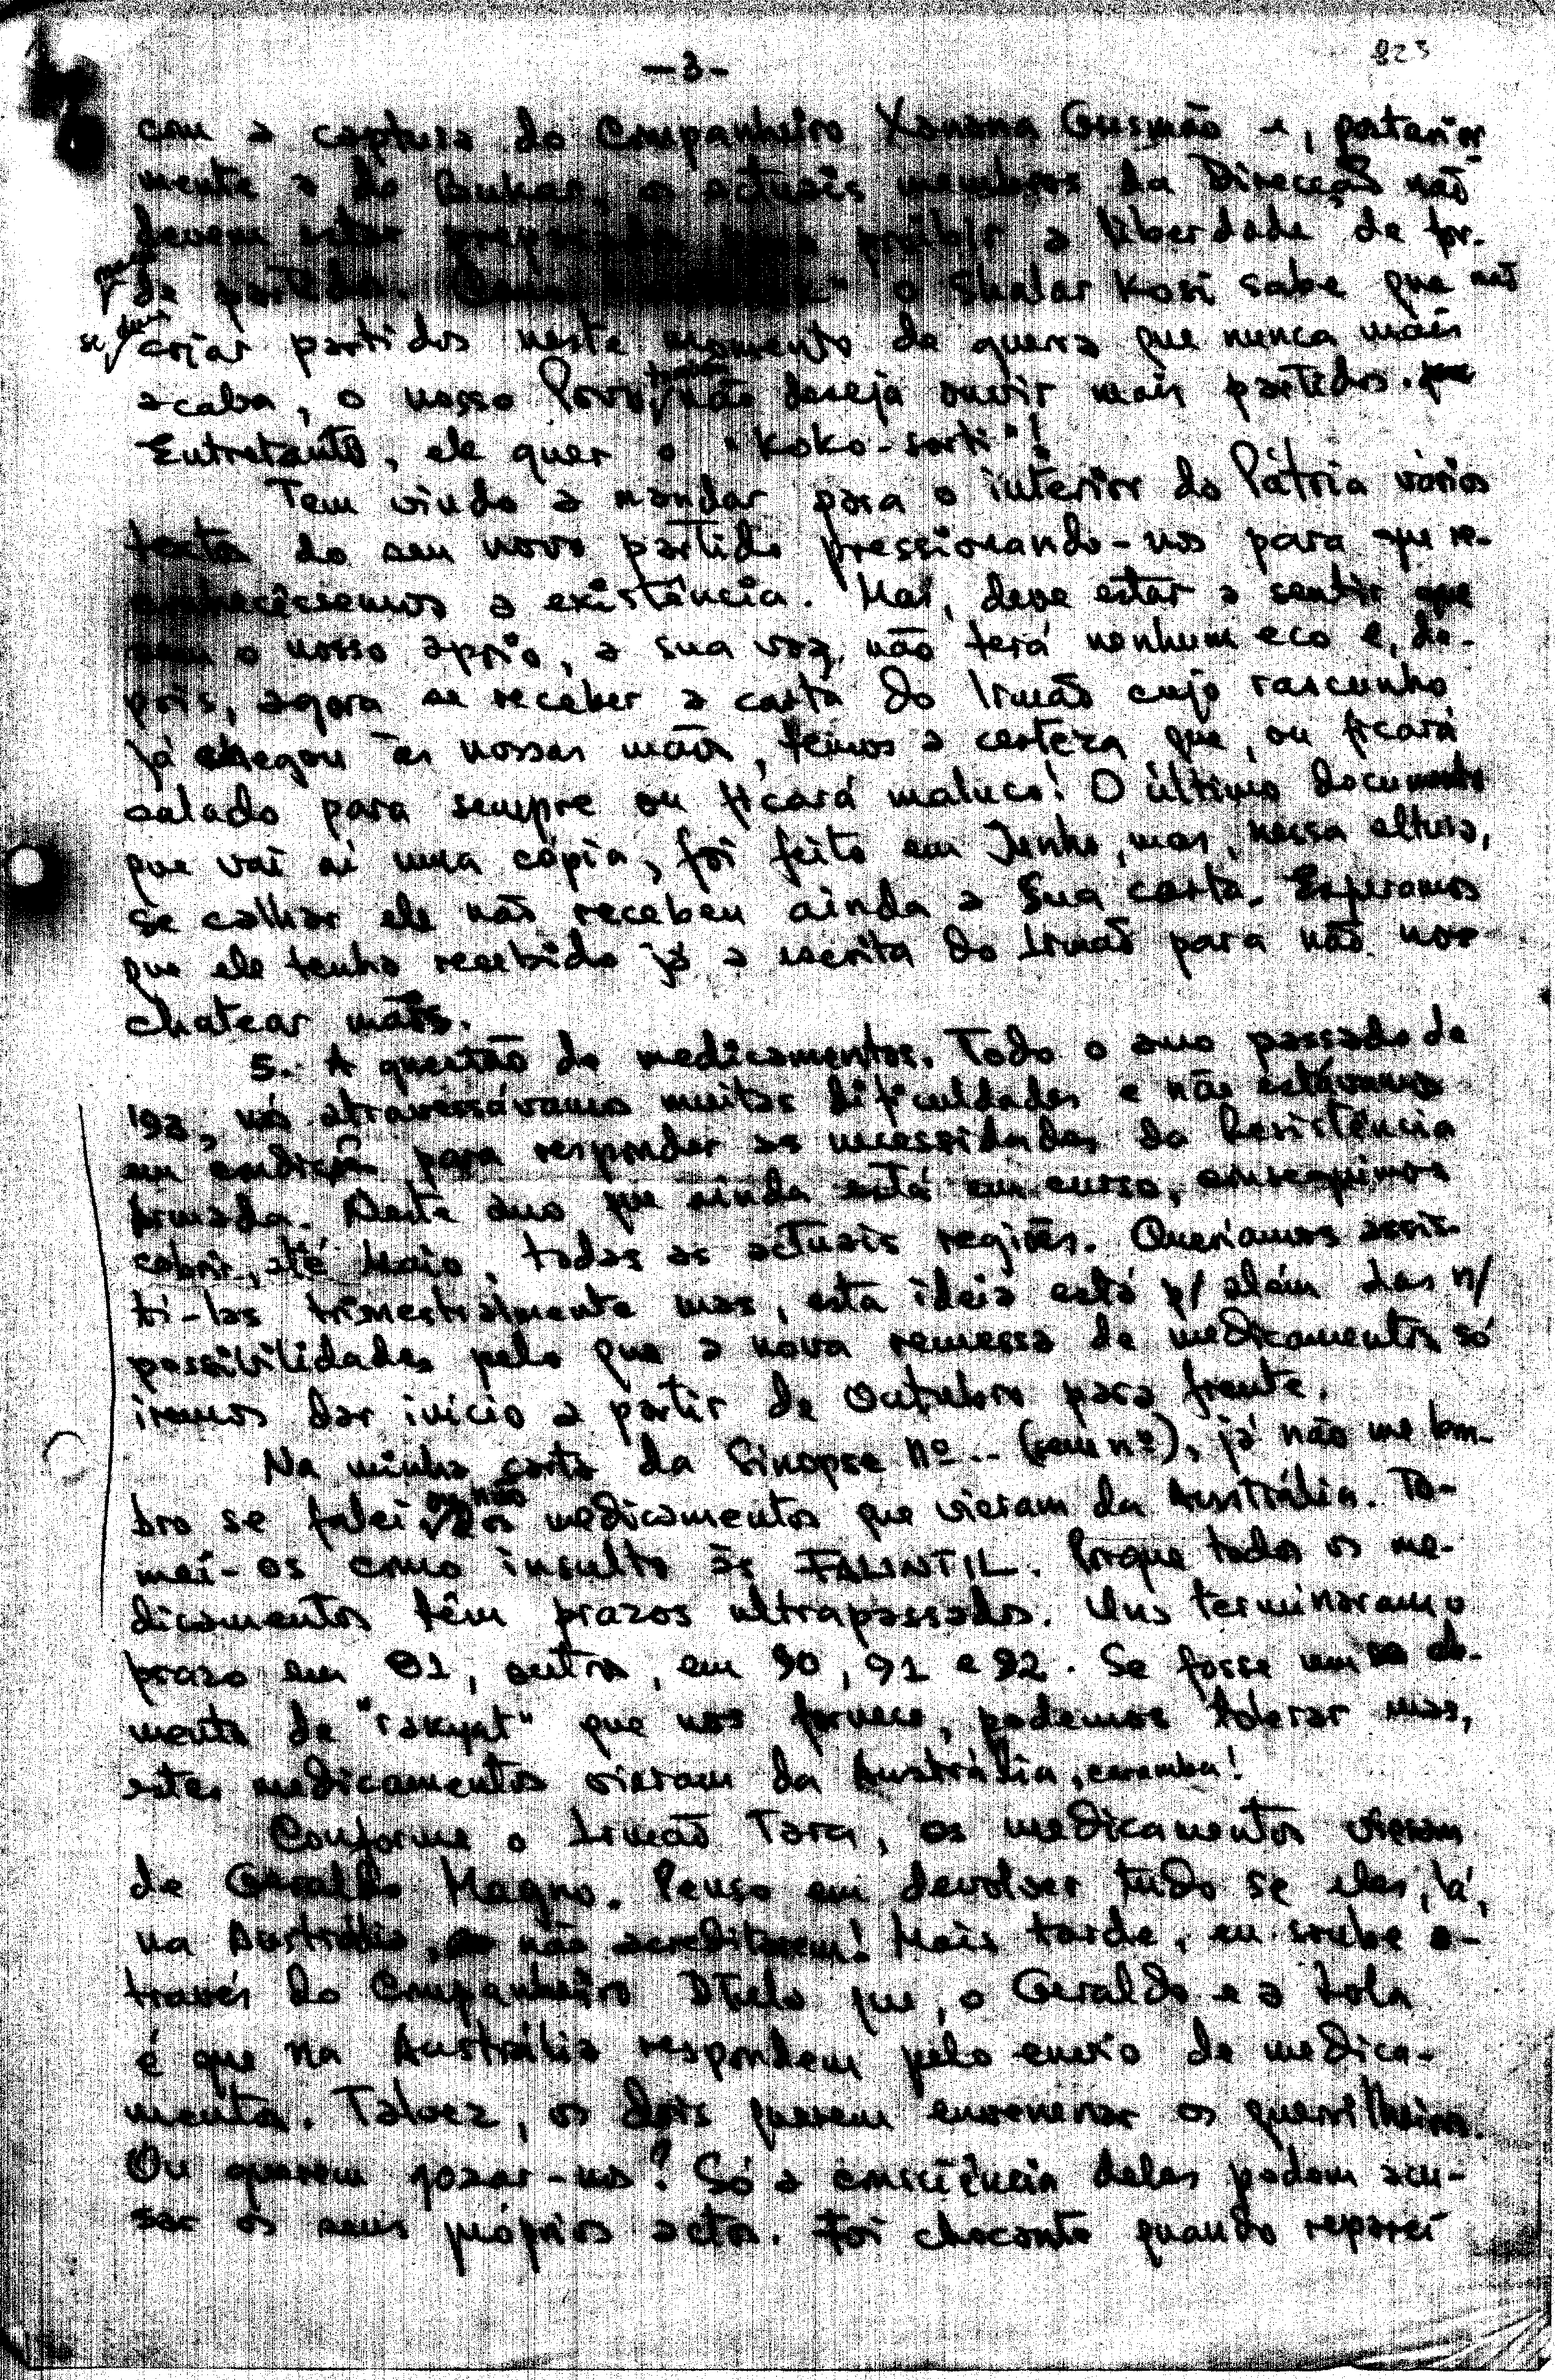 -3-
823
com a captura do Companheiro Xanana Gusmão e, posterior
mente a do Bunkar, os actuais membros da Direcção não
devem estar para proibir a liberdade de for.
de partidos. o Shalar Kosi sabe que não
se deve criar partidos neste momento de guerra que nunca mais
acaba, o nosso Povo, não deseja ouvir mais partidos.
Entretanto, ele quer o "Koko-sorti"!
Tem vindo a mandar para o interior da Pátria vários
textos do seu novo partido pressionando-nos para que re-
conhecêssemos a existência. Mas, deve estar a sentir que
sem o nosso apoio, a sua voz não terá nenhum eco e, de-
pois, agora se receber a carta do Irmão cujo rascunho
já chegou às nossas mãos, temos a certeza que, ou ficará
calado para sempre ou ficará maluco! O último documento
que vai aí uma cópia, foi feito em Junho, mas, nessa altura,
se calhar ele não recebeu ainda a Sua carta. Esperamos
que ele tenha recebido já a escrita do Irmão para não nos
chatear mais.
5. A questão de medicamentos. Todo o ano passado de
'92, nós atravessávamos muitas dificuldades e não estávamos
em condição para responder as necessidades da Resistência
Armada. Neste ano que ainda está em curso, conseguimos
cobrir, até Maio, todas as actuais regiões. Queríamos assis-
ti-las trimestralmente mas, esta ideia está p/ além das n/
possibilidades pelo que a nova remessa de medicamentos só
iremos dar início a partir de Outubro para frente.
Na minha carta da Sinopse Nº .. (sem nº), já não me lem-
bro se falei ou não dos medicamentos que vieram da Austrália. To-
mei-os como insulto às FALINTIL. Porque todos os me-
dicamentos têm prazos ultrapassados. Uns terminaram o
prazo em 81, outros, em 90, 91 e 92. Se fosse um
mento de "rakyat" que nos fornece, podemos tolerar mas,
estes medicamentos vieram da Austrália, caramba!
Conforme o Irmão Tara, os medicamentos vieram
de Geraldo Magno. Penso em devolver tudo se eles, lá,
na Austrália, não acreditarem! Mais tarde, eu soube a-
través do Companheiro que, o Geraldo e a Lola
é que na Austrália respondem pelo envio de medica-
mentos. Talvez, os dois querem envenenar os guerrilheiros.
Ou querem gozar-nos? Só a consciência deles podem acu-
sar os seus próprios actos. Foi chocante quando reparei